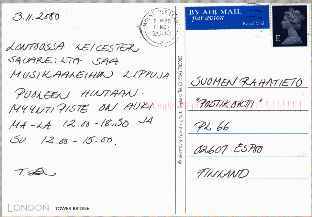 3.11.2000
LONTOOSSA LEICESTER
SQUARE:LTA SAA
MUSIKAALEIHIN LIPPUJA
PUOLEEN HINTAAN.
MYYNTIPISTE ON AUKI
MA-LA 12.00-18.30 JA
SU 12.00-15.00.
LONDON TOWER BRIDGE
BY AIR MAIL
par avion
E
SUOMEN RAHATIETO
"POSTIKORTTI"
PL 66
02607 ESPOO
FINLAND